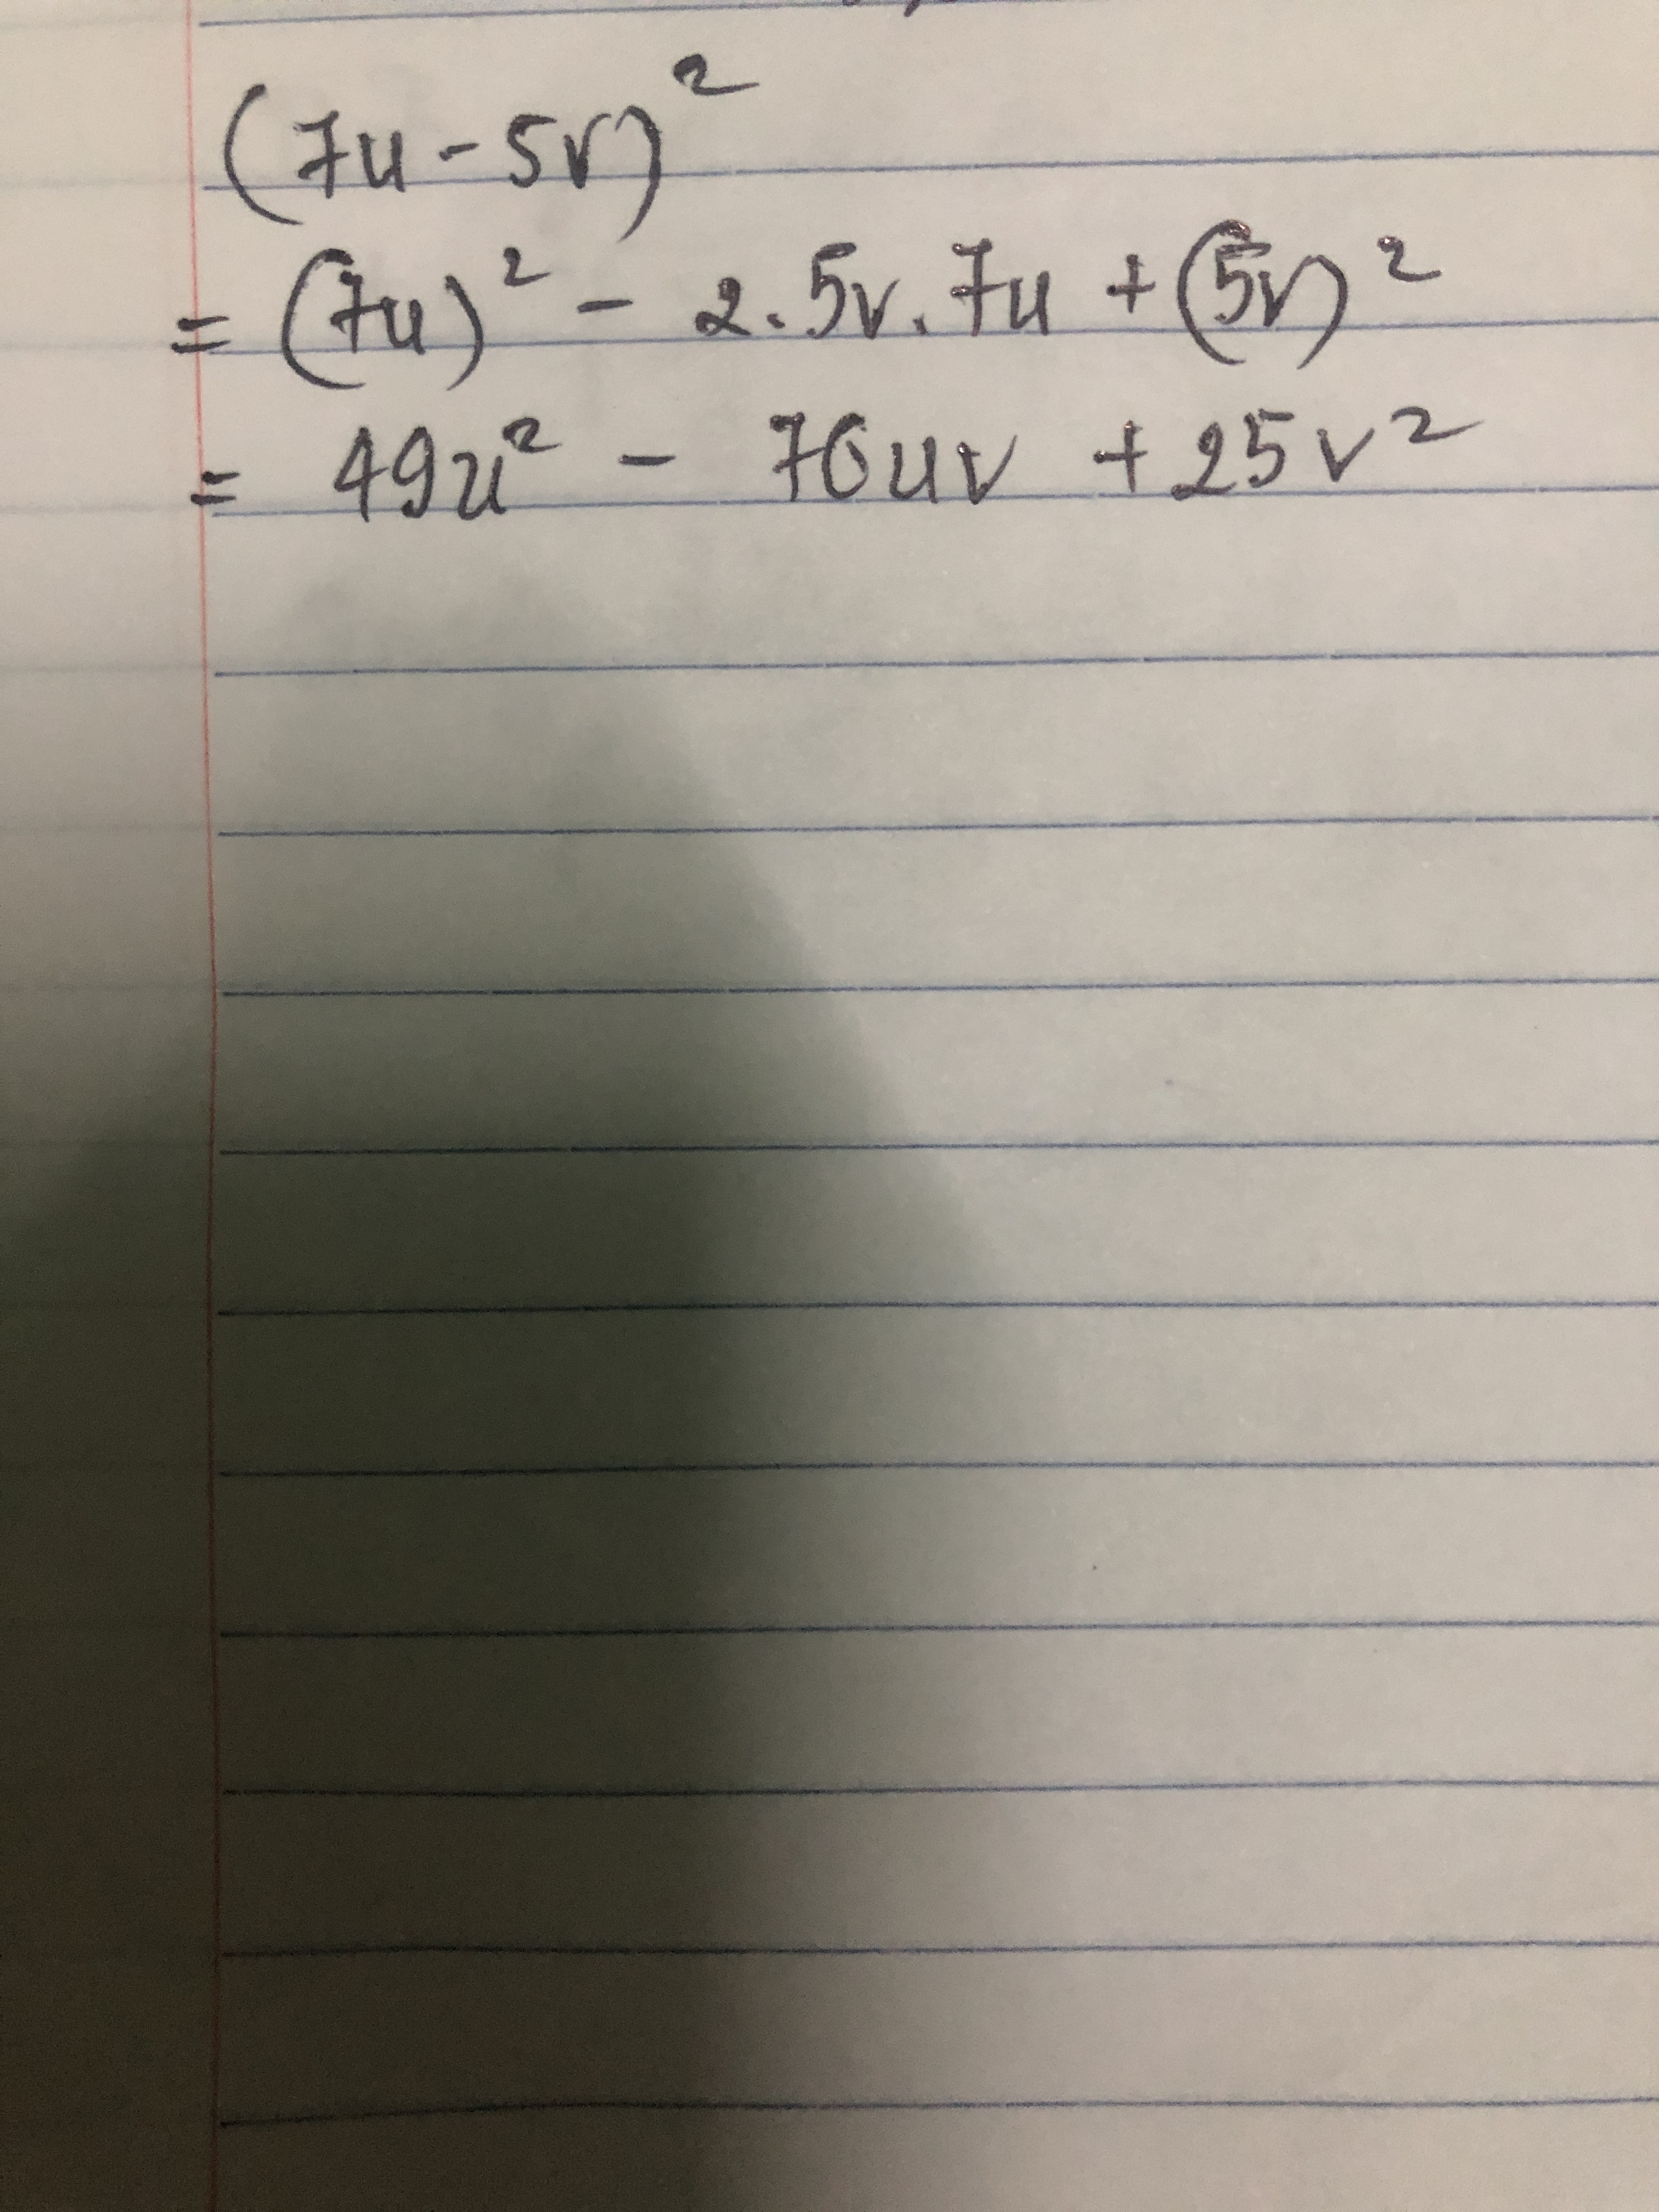 (7u - 5v)²
= (7u)² - 2.5v.7u + (5v)²
= 49u² - 70uv + 25v²